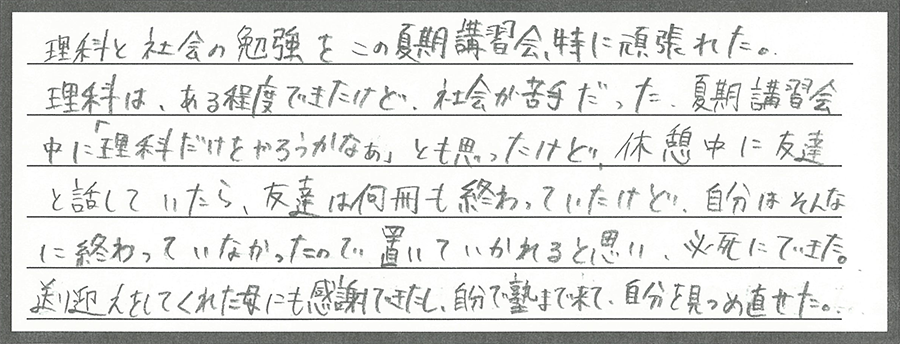 理科と社会の勉強をこの夏期講習会、特に頑張れた。
理科は、ある程度できたけど、社会が苦手だった、夏期講習会
中に「理科だけをやろうかなぁ」とも思ったけど、休憩中に友達
と話していたら、友達は何冊も終わっていたけど、自分はそんな
に終わっていなかったので置いていかれると思い、必死にできた。
送り迎えをしてくれた母にも感謝できたし、自分で塾まで来て、自分を見つめ直せた。